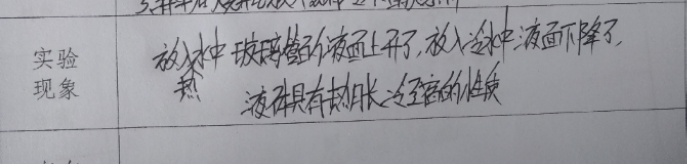 实验
现象
放入热水中玻璃管的液面上升了,放入冷水中液面下降了,
液体具有热胀冷缩的性质